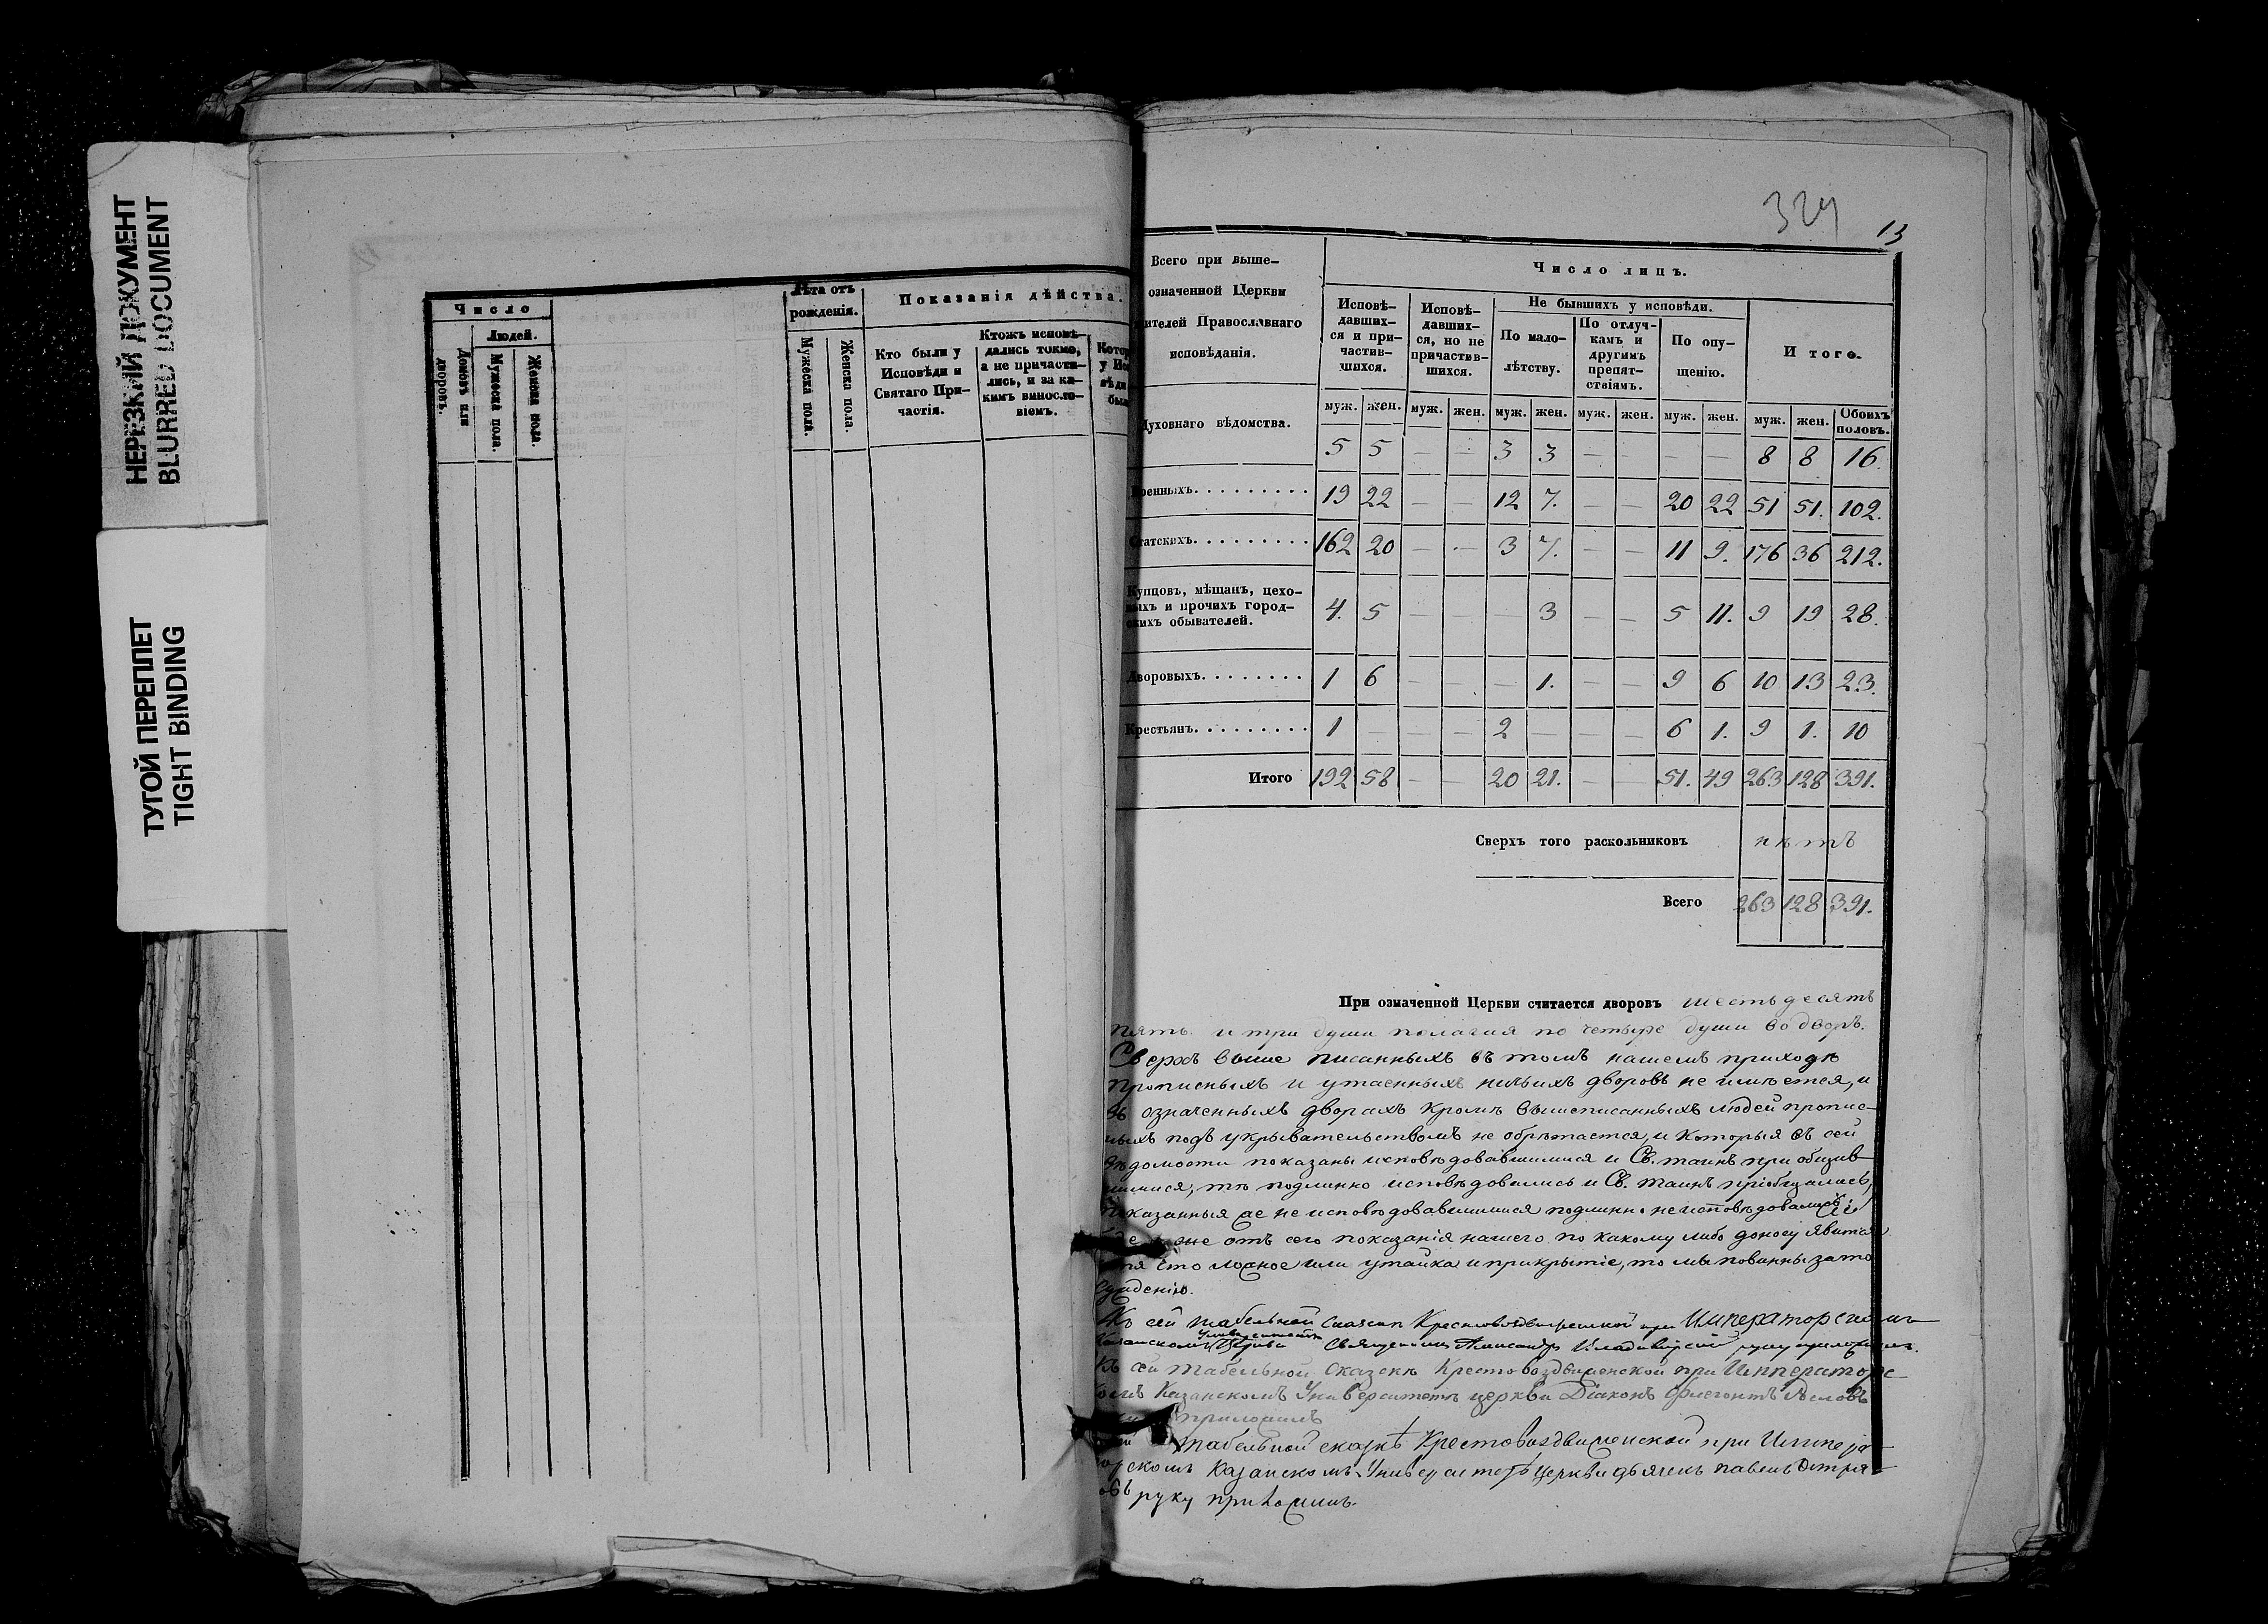 НЕРЕЗКИЙ ДОКУМЕНТ
BLURRED DOCUMENT
ТУГОЙ ПЕРЕПЛЕТ
TIGHT BINDING
Число
Домовъ или дворовъ.
Людей.
Мужеска пола.
Женска пола.
Лѣта отъ рожденія.
Мужеска пола.
Женска пола.
Показанія дѣйства.
Кто были у
Исповѣди и
Святаго При-
частія.
Ктожъ исповѣ-
дались токмо,
а не причасти-
лись, и за ка-
кимъ винosло-
віемъ.
324
13
Всего при выше-
означенной Церкви
жителей Православнаго
исповѣданія.
Число лицъ.
Исповѣ-
давших-
ся и при-
частив-
шихся.
Исповѣ-
давших-
ся, но не
причастив-
шихся.
Не бывшихъ у исповѣди.
По мало-
лѣтству.
По отлуч-
камъ и
другимъ
препят-
ствіямъ.
По опу-
щенію.
Итого.
муж. жен. муж. жен. муж. жен. муж. жен. муж. жен. муж. жен. Обоихъ половъ.
Духовнаго вѣдомства. 5 5 — — 3 3 — — — — 8 8 16.
Военныхъ. 19 22 — — 12 7. — — 20 22 51 51. 102.
Статскихъ. 162 20 — — 3 7. — — 11 9. 176 36 212.
Купцовъ, мѣщанъ, цехо-
выхъ и прочихъ город-
скихъ обывателей. 4. 5 — — — 3 — — 5 11. 9 19 28.
Дворовыхъ. 1 6 — — — 1. — — 9 6 10 13 23.
Крестьянъ. 1 — — — 2 — — — 6 1. 9 1. 10
Итого 192 58 — — 20 21. — — 51. 49 263 128 391.
Сверхъ того раскольниковъ нѣтъ
Всего 263 128 391.
При означенной Церкви считается дворовъ шестьдесятъ
пять и три души полагая по четыре души во дворѣ.
Сверхъ выше писанныхъ въ томъ нашемъ приходѣ
прописныхъ и утаенныхъ ничьихъ дворовъ не имѣется, и
въ означенныхъ дворахъ кромѣ вышеписанныхъ людей пропис-
ныхъ подъ укрывательствомъ не обрѣтается, и которыя въ сей
вѣдомости показаны исповѣдовавшимися и Св. таинъ пріобщив-
шимися, тѣ подлинно исповѣдовались и Св. таинъ пріобщались,
показанныя же не исповѣдовавшимися подлинно не исповѣдовались
же отъ сего показанія нашего по какому либо доносу явится
что ложное или утайка и прикрытіе, то мы повинны за то
сужденію.
Къ сей табельной сказкѣ Крестовоздвиженской при Императорскомъ
Казанскомъ Университетѣ Церкви Священникъ Александръ Владимірскій руку приложилъ.
Къ сей табельной сказкѣ Крестовоздвиженской при Императорс-
комъ Казанскомъ Университетѣ церкви Діаконъ
приложилъ
табельной сказкѣ Крестовоздвиженской при Импера-
торскомъ Казанскомъ Университетѣ Церкви дьячекъ Павелъ
руку приложилъ.